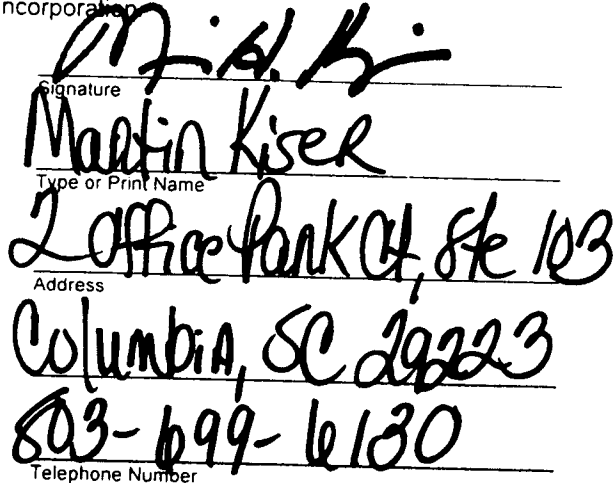 ncorporation
Signature
Martin Kiser
Type or Print Name
2 Office Park Ct, Ste 103
Address
Columbia, SC 29223
803-699-6130
Telephone Number